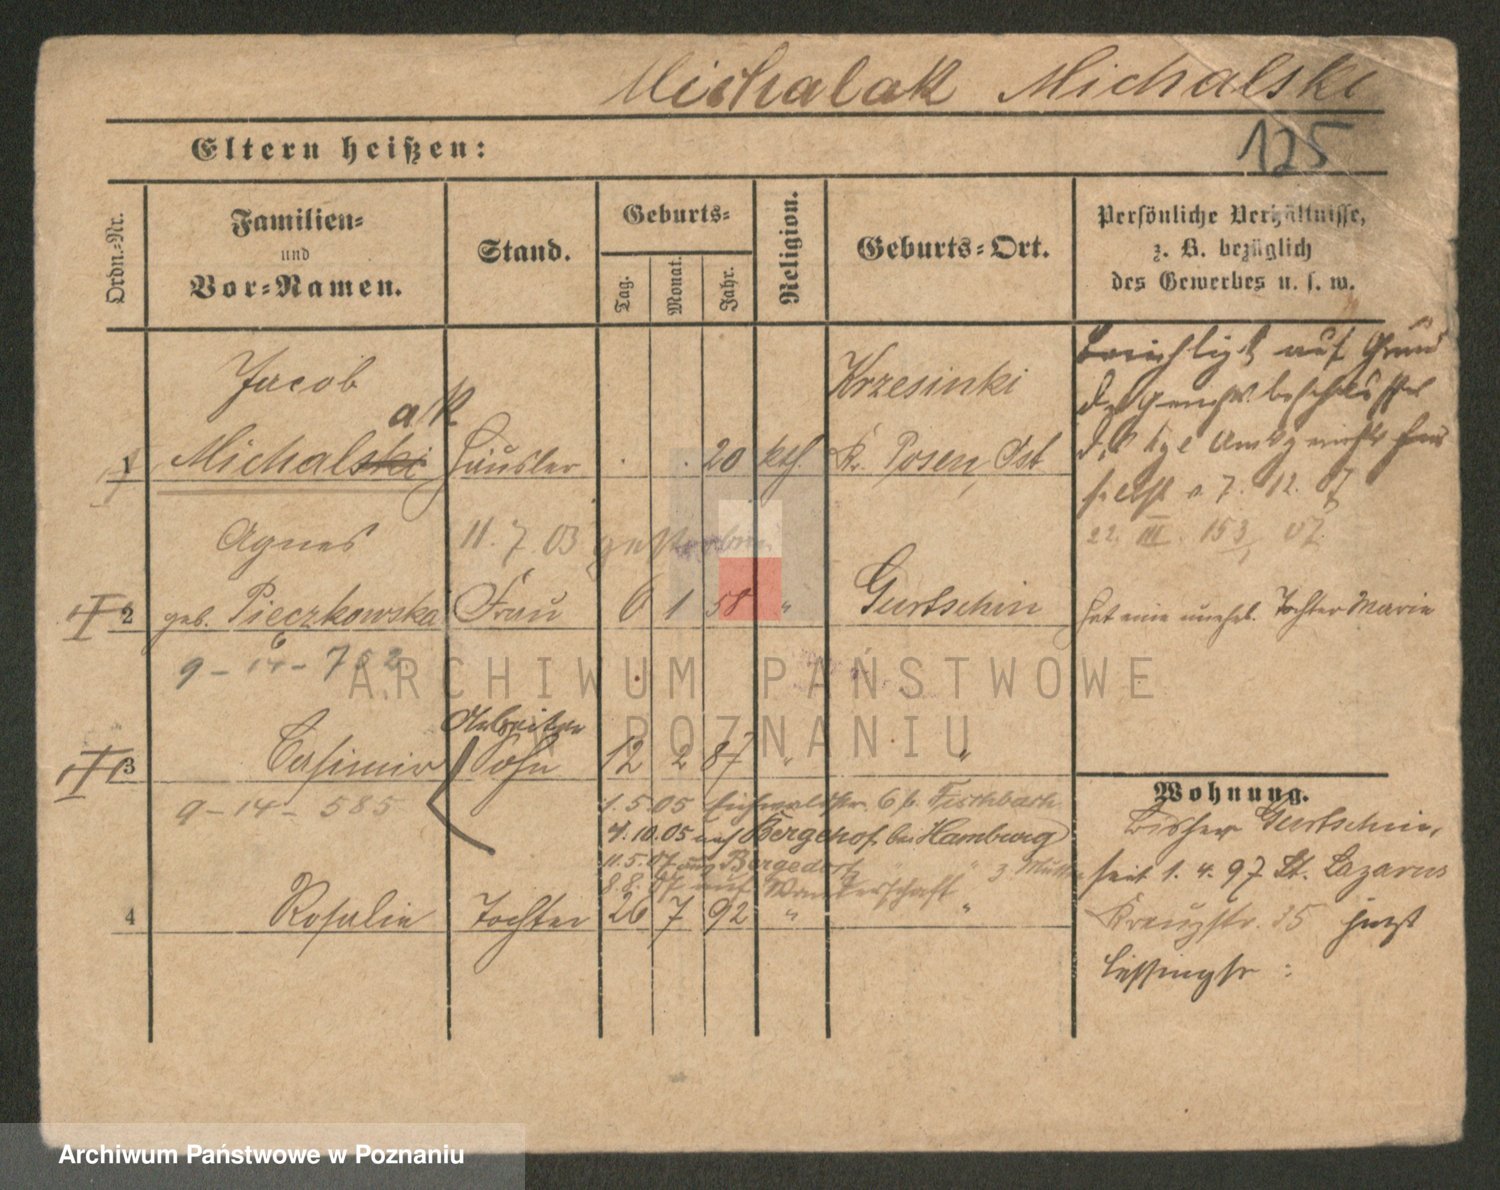 Michalak Michalski
Eltern heißen:
125
Ordn.-Nr.
Familien-
und
Vor-Namen.
Stand.
Geburts-
Tag.
Monat.
Jahr.
Religion.
Geburts-Ort.
Persönliche Verhältnisse,
z. B. bezüglich
des Gewerbes u. s. w.
Jacob
ak
1 Michalski Häusler 20 kth.
Krzesinki
Kr. Posen, Ost
Berichtigt auf Grund
7. 12. 07
22. III. 153 07
Agnes
11. 7. 03 gestorben
2 geb. Pieczkowska Frau 6 1 58 " Gurtschin
Hat eine unehel. Tochter Marie
9 - 14 - 752
Arbeiter
3 Casimir Sohn 12 2 87 " "
9 - 14 - 585
1.5.05 Eichwaldstr. 6 b. Fischbach
4.10.05 auf Bergehof bei Hamburg
11.5.07 aus Bergedorf " " z. Mutter
8.8.07 auf Wanderschaft
4 Rosalie Tochter 26 7 92 " "
Wohnung.
Bisher Gurtschin,
seit 1. 4. 97 St. Lazarus
Kreuzstr. 35 jetzt
Lessingstr:
ARCHIWUM PAŃSTWOWE
W POZNANIU
Archiwum Państwowe w Poznaniu